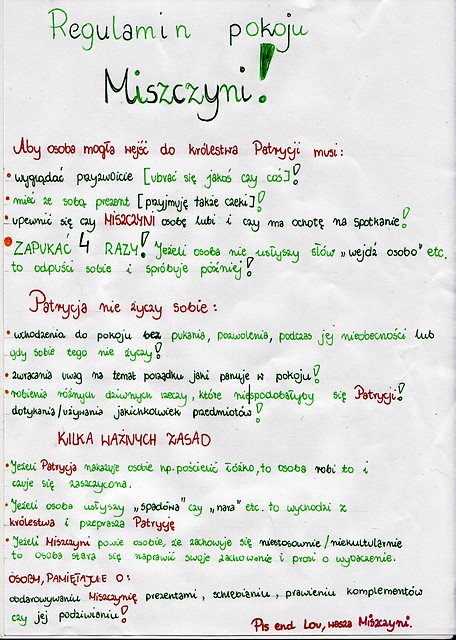 Regulamin pokoju
Miszczyni!
Aby osoba mogła wejść do królestwa Patrycji musi:
• wyglądać przyzwoicie [ubrać się jakoś czy coś]!
• mieć ze sobą prezent [przyjmuję także czeki]!
• upewnić się czy MISZCZYNI osobę lubi i czy ma ochotę na spotkanie!
• ZAPUKAĆ 4 RAZY! Jeżeli osoba nie usłyszy słów „wejdź osobo" etc.
to odpuści sobie i spróbuje później!
Patrycja nie życzy sobie:
• wchodzenia do pokoju bez pukania, pozwolenia, podczas jej nieobecności lub
gdy sobie tego nie życzy!
• zwracania uwag na temat porządku jaki panuje w pokoju!
• robienia różnych dziwnych rzeczy, które niespodobałyby się Patrycji!
dotykania/używania jakichkolwiek przedmiotów!
KILKA WAŻNYCH ZASAD
• Jeżeli Patrycja nakazuje osobie np. pościelić łóżko, to osoba robi to i
czuje się zaszczycona.
• Jeżeli osoba usłyszy „spadówa" czy „nara" etc. to wychodzi z
królestwa i przeprasza Patrycję
• Jeżeli Miszczyni powie osobie, że zachowuje się niestosownie/niekulturalnie
to osoba stara się naprawić swoje zachowanie i prosi o wybaczenie.
OSOBY, PAMIĘTAJCIE O:
obdarowywaniu Miszczynię prezentami, schlebianiu, prawieniu komplementów
czy jej podziwianiu!
Pis end Lov, wasza Miszczyni.